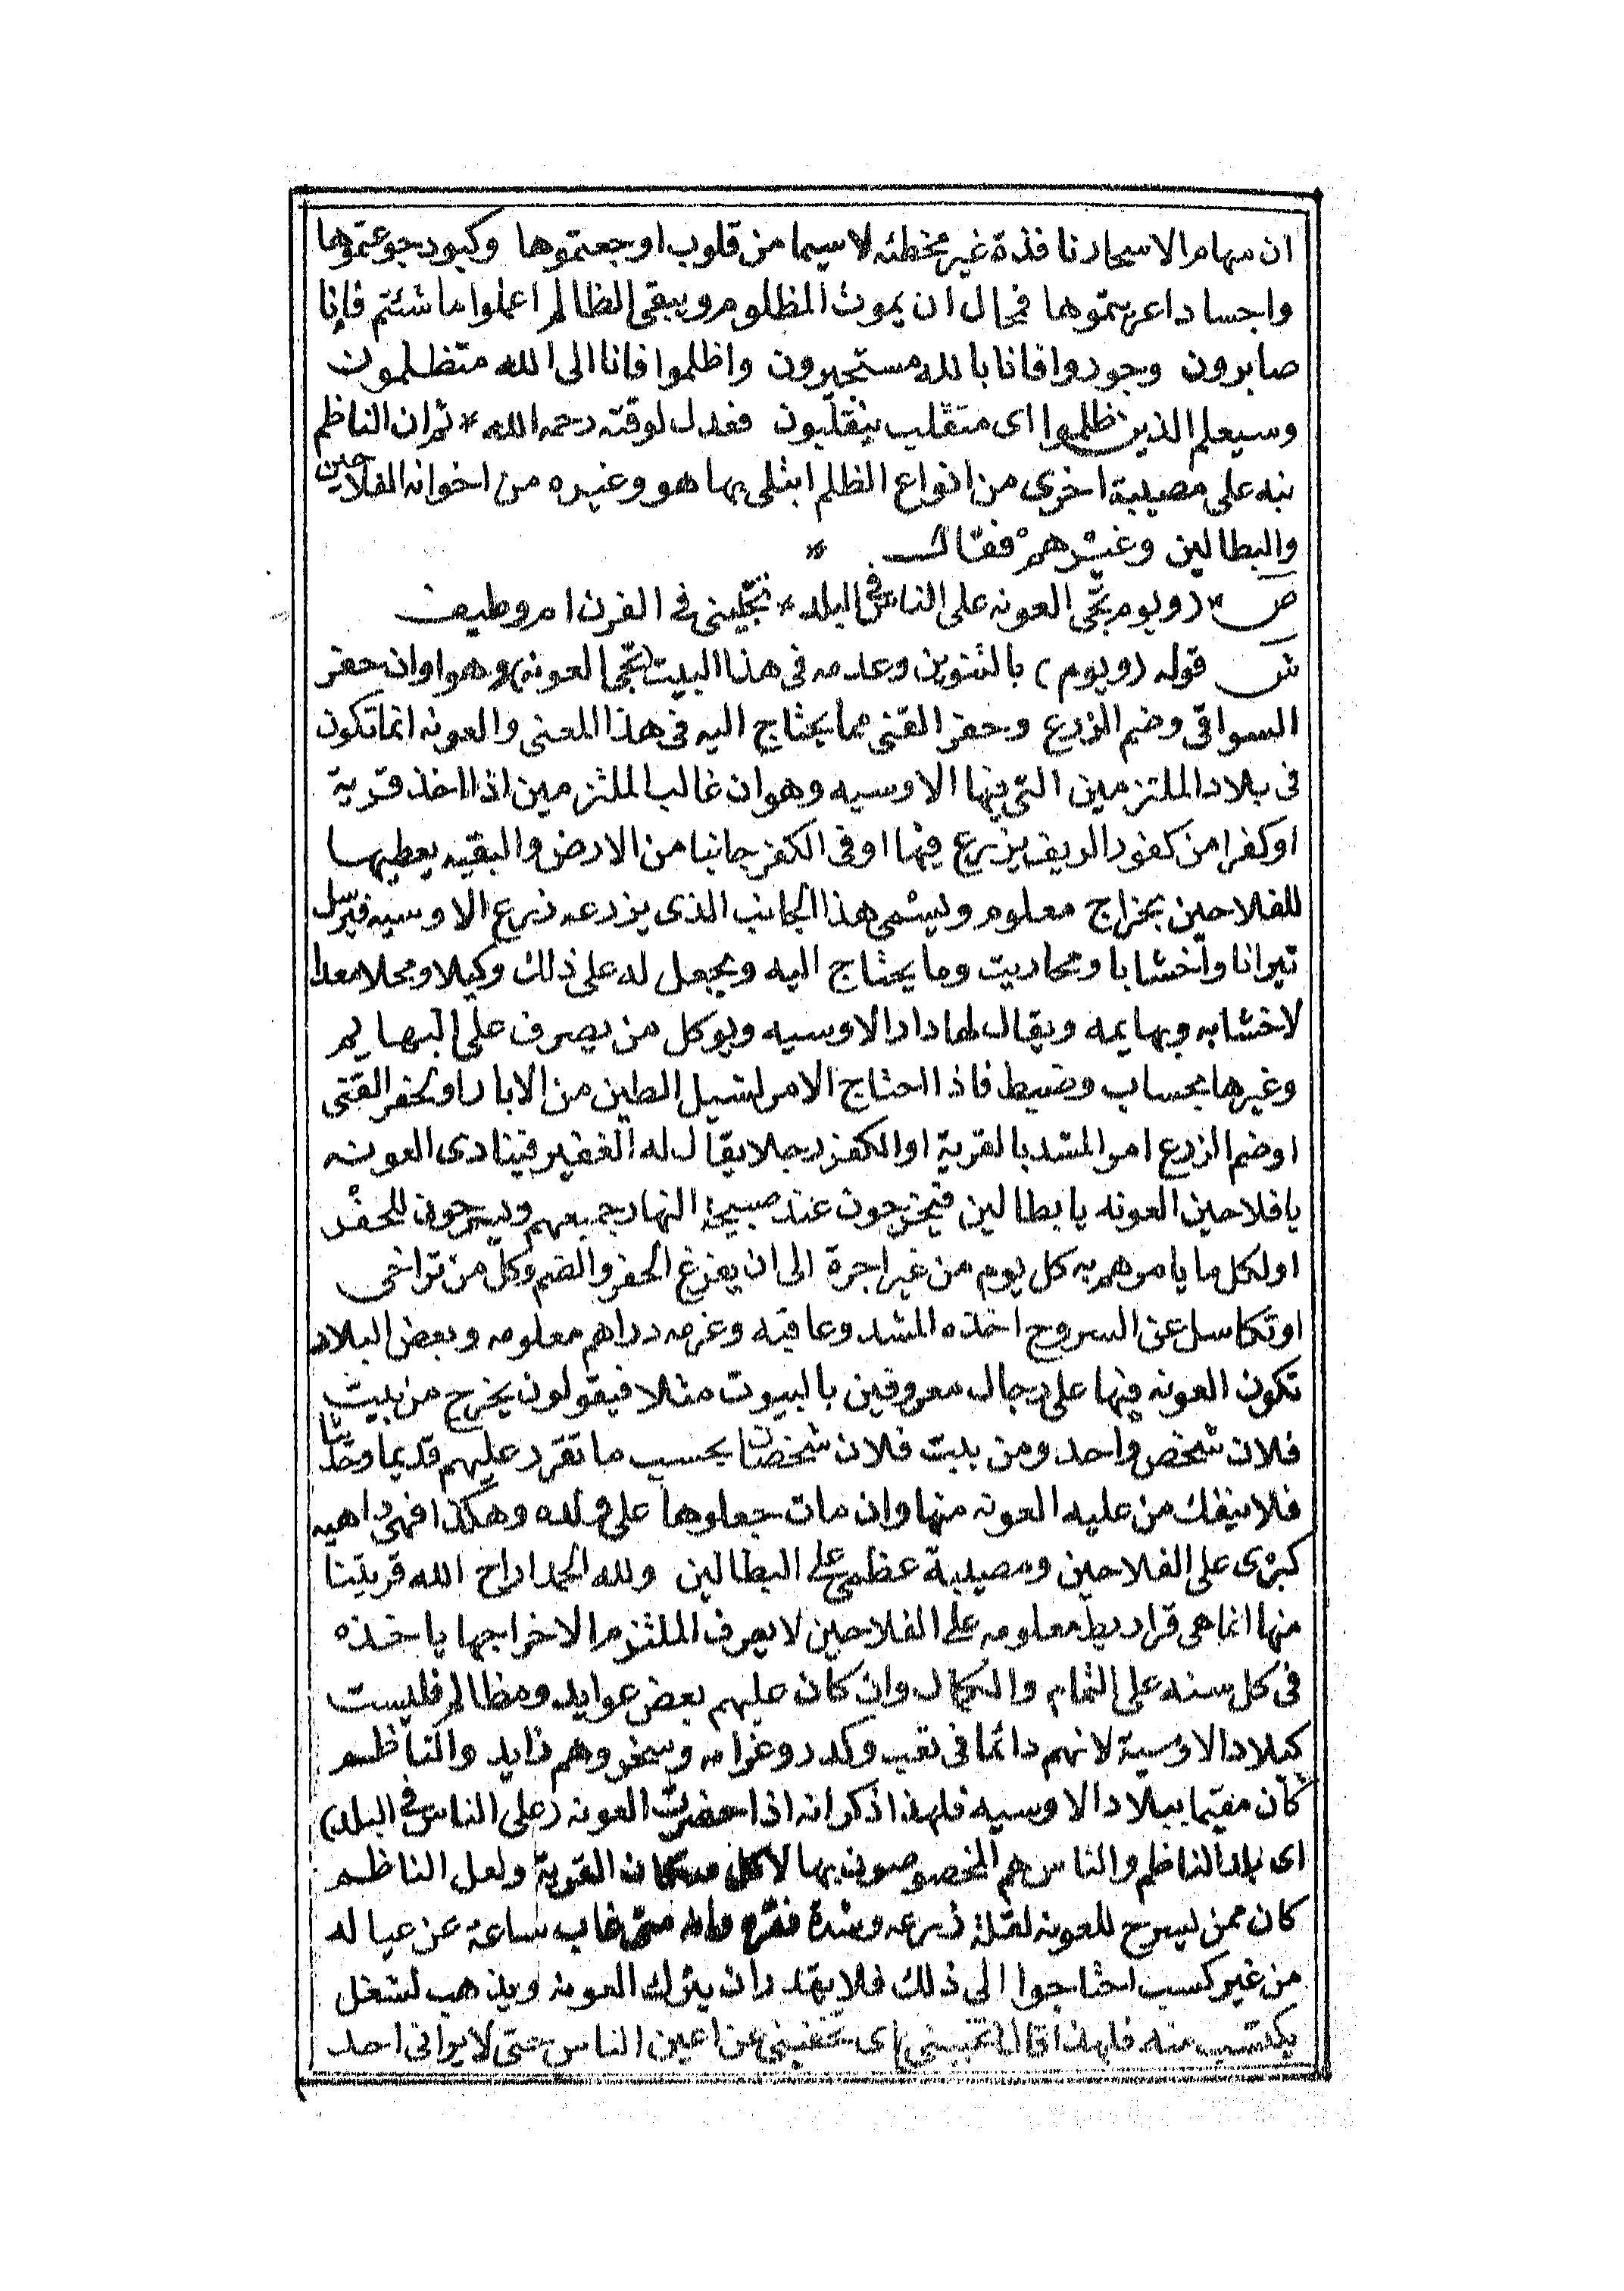 ان سهام الاسحار نافذة غير مخطئه لاسيما من قلوب اوجعتموها وكبود جوعتموها
واجساد اعريتموها فمحال ان يموت المظلوم ويبقى الظالم اعملوا ما شئتم فانا
صابرون وجوروا فانا بالله مستجيرون واظلموا فانا الى الله متظلمون
وسيعلم الذين ظلموا اى منقلب ينقلبون فعدل لوقته رحمه الله * ثم ان الناظم
نبه على مصيبة اخرى من انواع الظلم ابتلى بها هو وغيره من اخوانه الفلاحين
والبطالين وغيرهم فقال *
ص * (ويوم تجى العونه على الناس فى البلد * تخبينى فى الفرن ام وطيف
ش قوله (ويوم) بالتنوين وعدمه فى هذا البيت (تجى العونه) وهو اوان حفر
السواقى وضم الزرع وحفر القنى مما يحتاج اليه فى هذا المعنى والعونه انما تكون
فى بلاد الملتزمين التى فيها الاوسيه وهو ان غالب الملتزمين اذا اخذ قرية
او كفرا من كفور الريف يزرع فيها او فى الكفر جانبا من الارض والبقيه يعطيها
للفلاحين بخراج معلوم ويسمى هذا الجانب الذى يزرعه زرع الاوسيه فيرسل
تيرانا واخشابا ومحاريت وما يحتاج اليه ويجعل له على ذلك وكيلا ومحلا معدا
لاخشابه وبهايمه ويقال لها دار الاوسيه ويوكل من يصرف على البهايم
وغيرها بحساب وضبط فاذا احتاج الامر لشيل الطين من الابار او لحفر القنى
او ضم الزرع امر المشد بالقرية او الكفر رجلا يقال له الغفير فينادى العونه
يا فلاحين العونه يا بطالين فيخرجون عند صبيحة النهار جميعهم ويسرحون للحفر
او لكل ما يامرهم به كل يوم من غير اجرة الى ان يفرغ الحفر والضم وكل من تراخى
او تكاسل عن السروح اخذه المشد وعاقبه وغرمه دراهم معلومه وبعض البلاد
تكون العونه فيها على رجال معروفين بالبيوت مثلا فيقولون يخرج من بيت
فلان شخص واحد ومن بيت فلان شخصان بحسب ما تقرر عليهم قديما وحديثا
فلا ينفك من عليه العونه منها وان مات جعلوها على ولده وهكذا فهى داهيه
كبرى على الفلاحين ومصيبة عظمى على البطالين ولله الحمد اراح الله قريتنا
منها انما هى قراريط معلومه على الفلاحين لا يعرف الملتزم الا خراجها ياخذه
فى كل سنه على التمام والكمال وان كان عليهم بعض عوايد ومظالم فليست
كبلاد الاوسية لانهم دائما فى تعب وكدر وغرامه وسخر وهم زايد والناظم
كان مقيما ببلاد الاوسيه فلهذا ذكر انه اذا حضرت العونه (على الناس فى البلد)
اى بلد الناظم والناس هم المخصوصون بها لا كل سكان القرية ولعل الناظم
كان ممن يسرح للعونه لقلة زرعه وشدة فقره وانه متى غاب ساعة عن عياله
من غير كسب احتاجوا الى ذلك فلا يقدر ان يترك العونه ويذهب لشغل
يكتسب منه فلهذا قال (تخبينى) اى تخفينى عن اعين الناس حتى لا يرانى احد